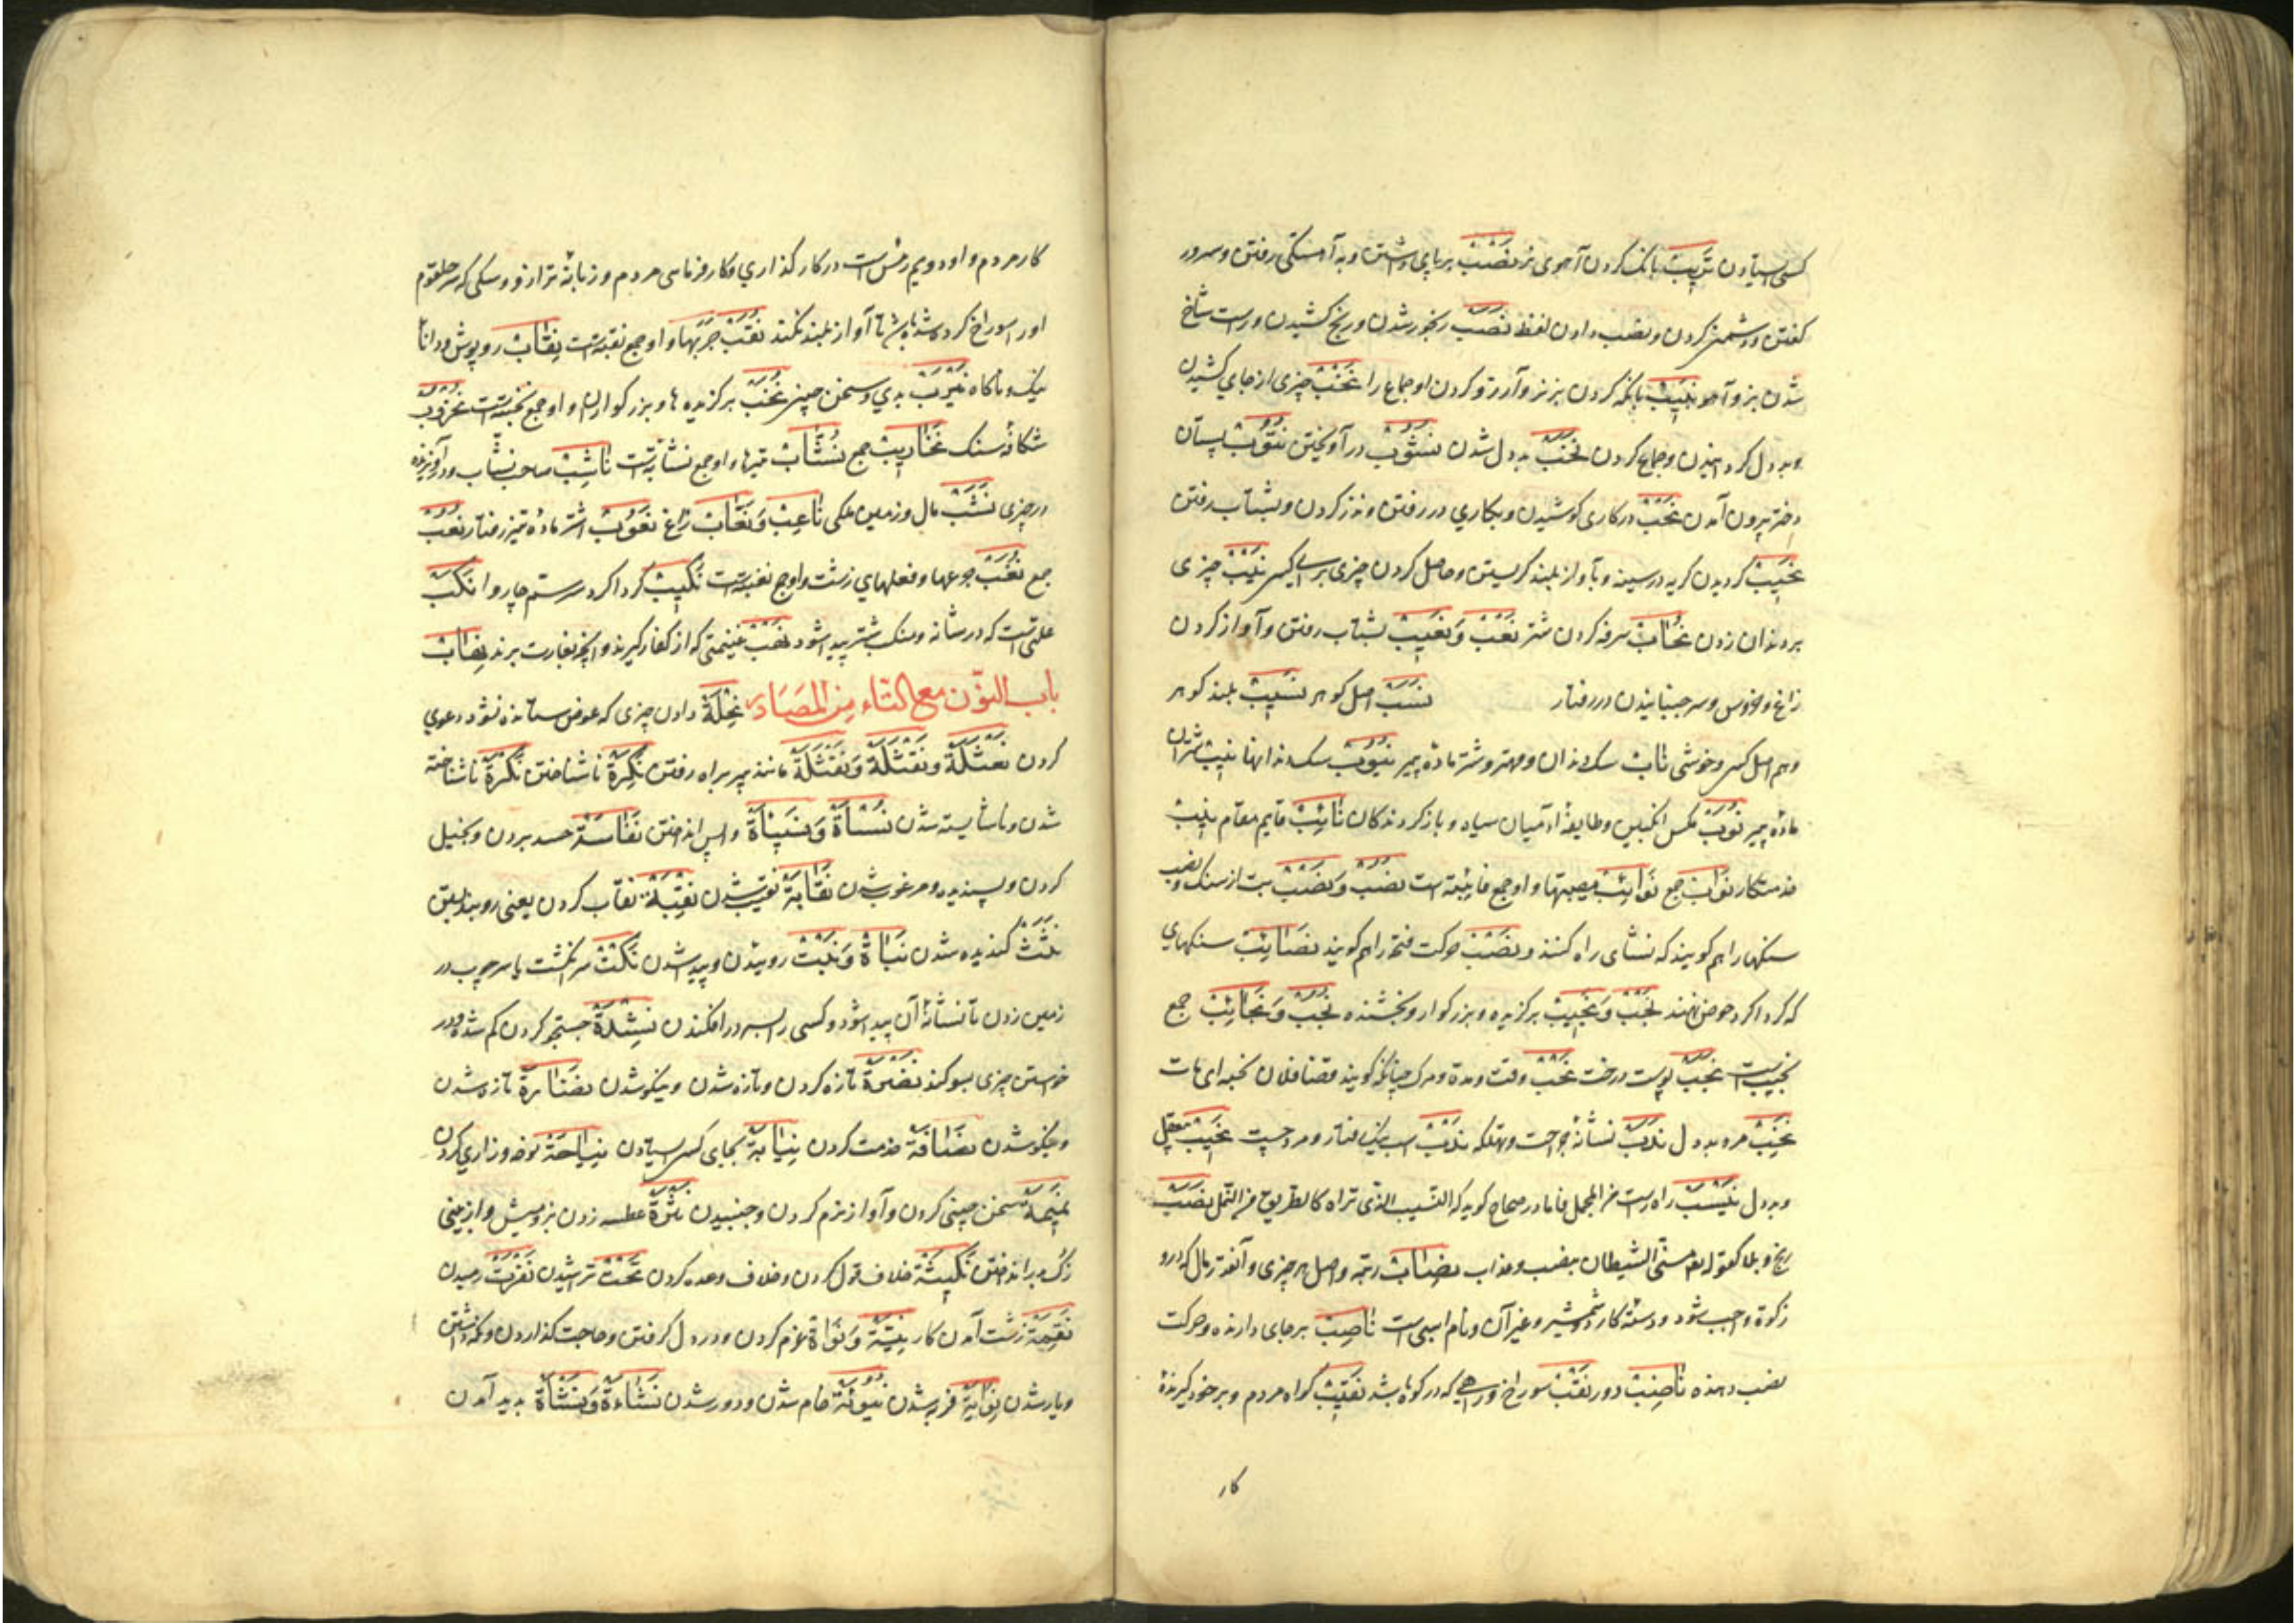 کسی استادن نَزِیبْ بانک کردن آهوی نر نَصْبْ برپای داشتن و به آهستکی رفتن و سرور
کفتن و دشمنی کردن و نصب دادن لفظ نَصَبْ رنجور شدن و رنج کشیدن و راست شاخ
شدن بز و آهو نَبِیبْ بانکه کردن بز نر و آرزو کردن او جماع را نَخْبْ چیزی از جای کشیدن
و بد دل کردانیدن و جماع کردن نَخَبْ بد دل شدن نُشُوبْ در آویختن نُتُوبْ پستان
دختر بیرون آمدن نَحْبْ در کاری کوشیدن و بکاری در رفتن و نذر کردن و بشتاب رفتن
نَحِیبْ کردیدن کریه در سینه و بآواز بلند کریستن و حاصل کردن چیزی برای کسی نَیْبْ چیزی
بر دندان زدن نُحَابْ سرفه کردن شتر نَعْبْ وَنَعِیبْ بشتاب رفتن و آواز کردن
زاغ و خروس و سر جنبانیدن در رفتار نَسَبْ اصل کوهر نَسِیبْ بلند کوهر
و هم اصل کسی و خوشی نَابْ سک دندان و مهتر و شتر مادهٔ پیر نُیُوبْ سک دندانها نِیبْ شتران
مادهٔ پیر نُوبْ مکس انکبین و طایفهٔ آدمیان سیاه و باز کردندکان نَائِبْ قایم مقام
خدمتکار نَوَائِبْ مصیبتها و او جمع نائبة است نُصُبْ وَنَصْبْ بت از سنک و نصب
سنکها را هم کویند که نشانی راه کنند و نَصْبْ حرکت فتحه را هم کویند نَصَائِبْ سنکهای
که کرداکرد حوض نهند نَجْبْ وَنَجِیبْ برکزیده و بزرکوار و بخشنده نُجُبْ وَنَجَائِبْ جمع
نجیب است نَجَبْ پوست درخت نَحْبْ وقت و مدة و مرک چنانکه کویند قضا فلان نحبه ای مات
نَخِبْ مرد بد دل نَدَبْ نشانهٔ جراحت و مهلکه نَدْبْ اسب نیک رفتار و مرد چست نَخِیبْ
و بد دل نَیْسَبْ راه راست من المجمل فاما در صحاح کوید که النیسب الذی تراه کالطریق من النمل نُصْبْ
رنج و بلا کقوله تعالی مسنی الشیطان بنصب و عذاب نِصَابْ رتبه و اصل هر چیزی و آنقدر مال که درو
زکوة واجب شود و دستهٔ کارد و شمشیر و غیر آن و نام اسبی است نَاصِبْ بر جای دارنده و حرکت
نصب دهنده نَاضِبْ دور نَقْبْ سوراخ و راهی که در کوه باشد نَقِیبْ کواه مردم و بر خود کیرندهٔ
کار
کار مردم و او دویم رئیس است در کار کذاری و کارفرمایی مردم و زبانهٔ ترازو و سکی که سر حلقوم
او را سوراخ کرده باشند تا آواز بلند نکند نُقَبْ جربها و او جمع نقبة است نِقَابْ روپوش و دانا
نیک و ناکاه نَیْرَبْ بدی و سخن چینی نُخَبْ برکزیدهها و بزرکواران و او جمع نخبة است نُخْرُوبْ
شکاف سنک نَخَارِیبْ جمع نُشَّابْ تیرها و او جمع نشابة است نَاشِبْ صاحب نشاب و در آویزنده
در چیزی نَشَبْ مال و زمین ملکی نَاعِبْ وَنَعَّابْ زاغ نَعُوبْ اشتر مادهٔ تیز رفتار نُعُبْ
جمع نُغَبْ جرعها و فعلهای زشت و او جمع نغبة است نَکِیبْ کرداکرد سم چاروا نَکَبْ
علتی است که در شانه و منکب شتر پیدا شود نَهْبْ غنیمتی که از کفار کیرند و آنچه بغارت برند نِهَابْ
باب النون مع التاء من المصادر نِحْلَةْ دادن چیزی که عوض ستانده نشود و دعوی
کردن نَعْثَلَةْ وَنَقْثَلَةْ وَنَقْثَلَةْ مانند پیر براه رفتن نَکِرَةْ ناشناختن نَکْرَةْ ناشناخته
شدن و ناشایسته شدن نَسْأَةْ وَنَسِیئَةْ واپس انداختن نَفَاسَةْ حسد بردن و بخیلی
کردن و پسندیده و مرغوب شدن نَقَابَةْ نقیب شدن نِقْبَةْ نقاب کردن یعنی روبند بستن
نَثَتْ کندیده شدن نَبَاتْ وَنَبْتْ روییدن و پیدا شدن نَکْتْ سر انکشت یا سر چوب در
زمین زدن تا نشانهٔ آن پیدا شود و کسی را بسر در افکندن نِشْدَةْ جستجو کردن کم شده و در
خواستن چیزی بسوکند نَضْرَةْ تازه کردن و تازه شدن و نیکو شدن نَضَارَةْ تازه شدن
و نیکو شدن نَصَافَةْ خدمت کردن نِیَابَةْ بجای کسی استادن نِیَاحَةْ نوحه و زاری کردن
نَمِیمَةْ سخن چینی کردن و آواز نرم کردن و جنبیدن نَثْرَةْ عطسه زدن بز و میش و از بینی
انداختن نَکِیثَةْ خلاف قول کردن و خلاف وعده کردن نَحْتْ تراشیدن نَفْرَتْ رمیدن
نَقِمَةْ زشت آمدن کار نِیَّةْ وَنَوَاةْ عزم کردن و در دل کرفتن و حاجت کذاردن و نکه داشتن
و یار شدن نِوَایَةْ فربه شدن نُیُوئَةْ خام شدن و دور شدن نَشَاءَةْ وَنَشْأَةْ پدید آمدن